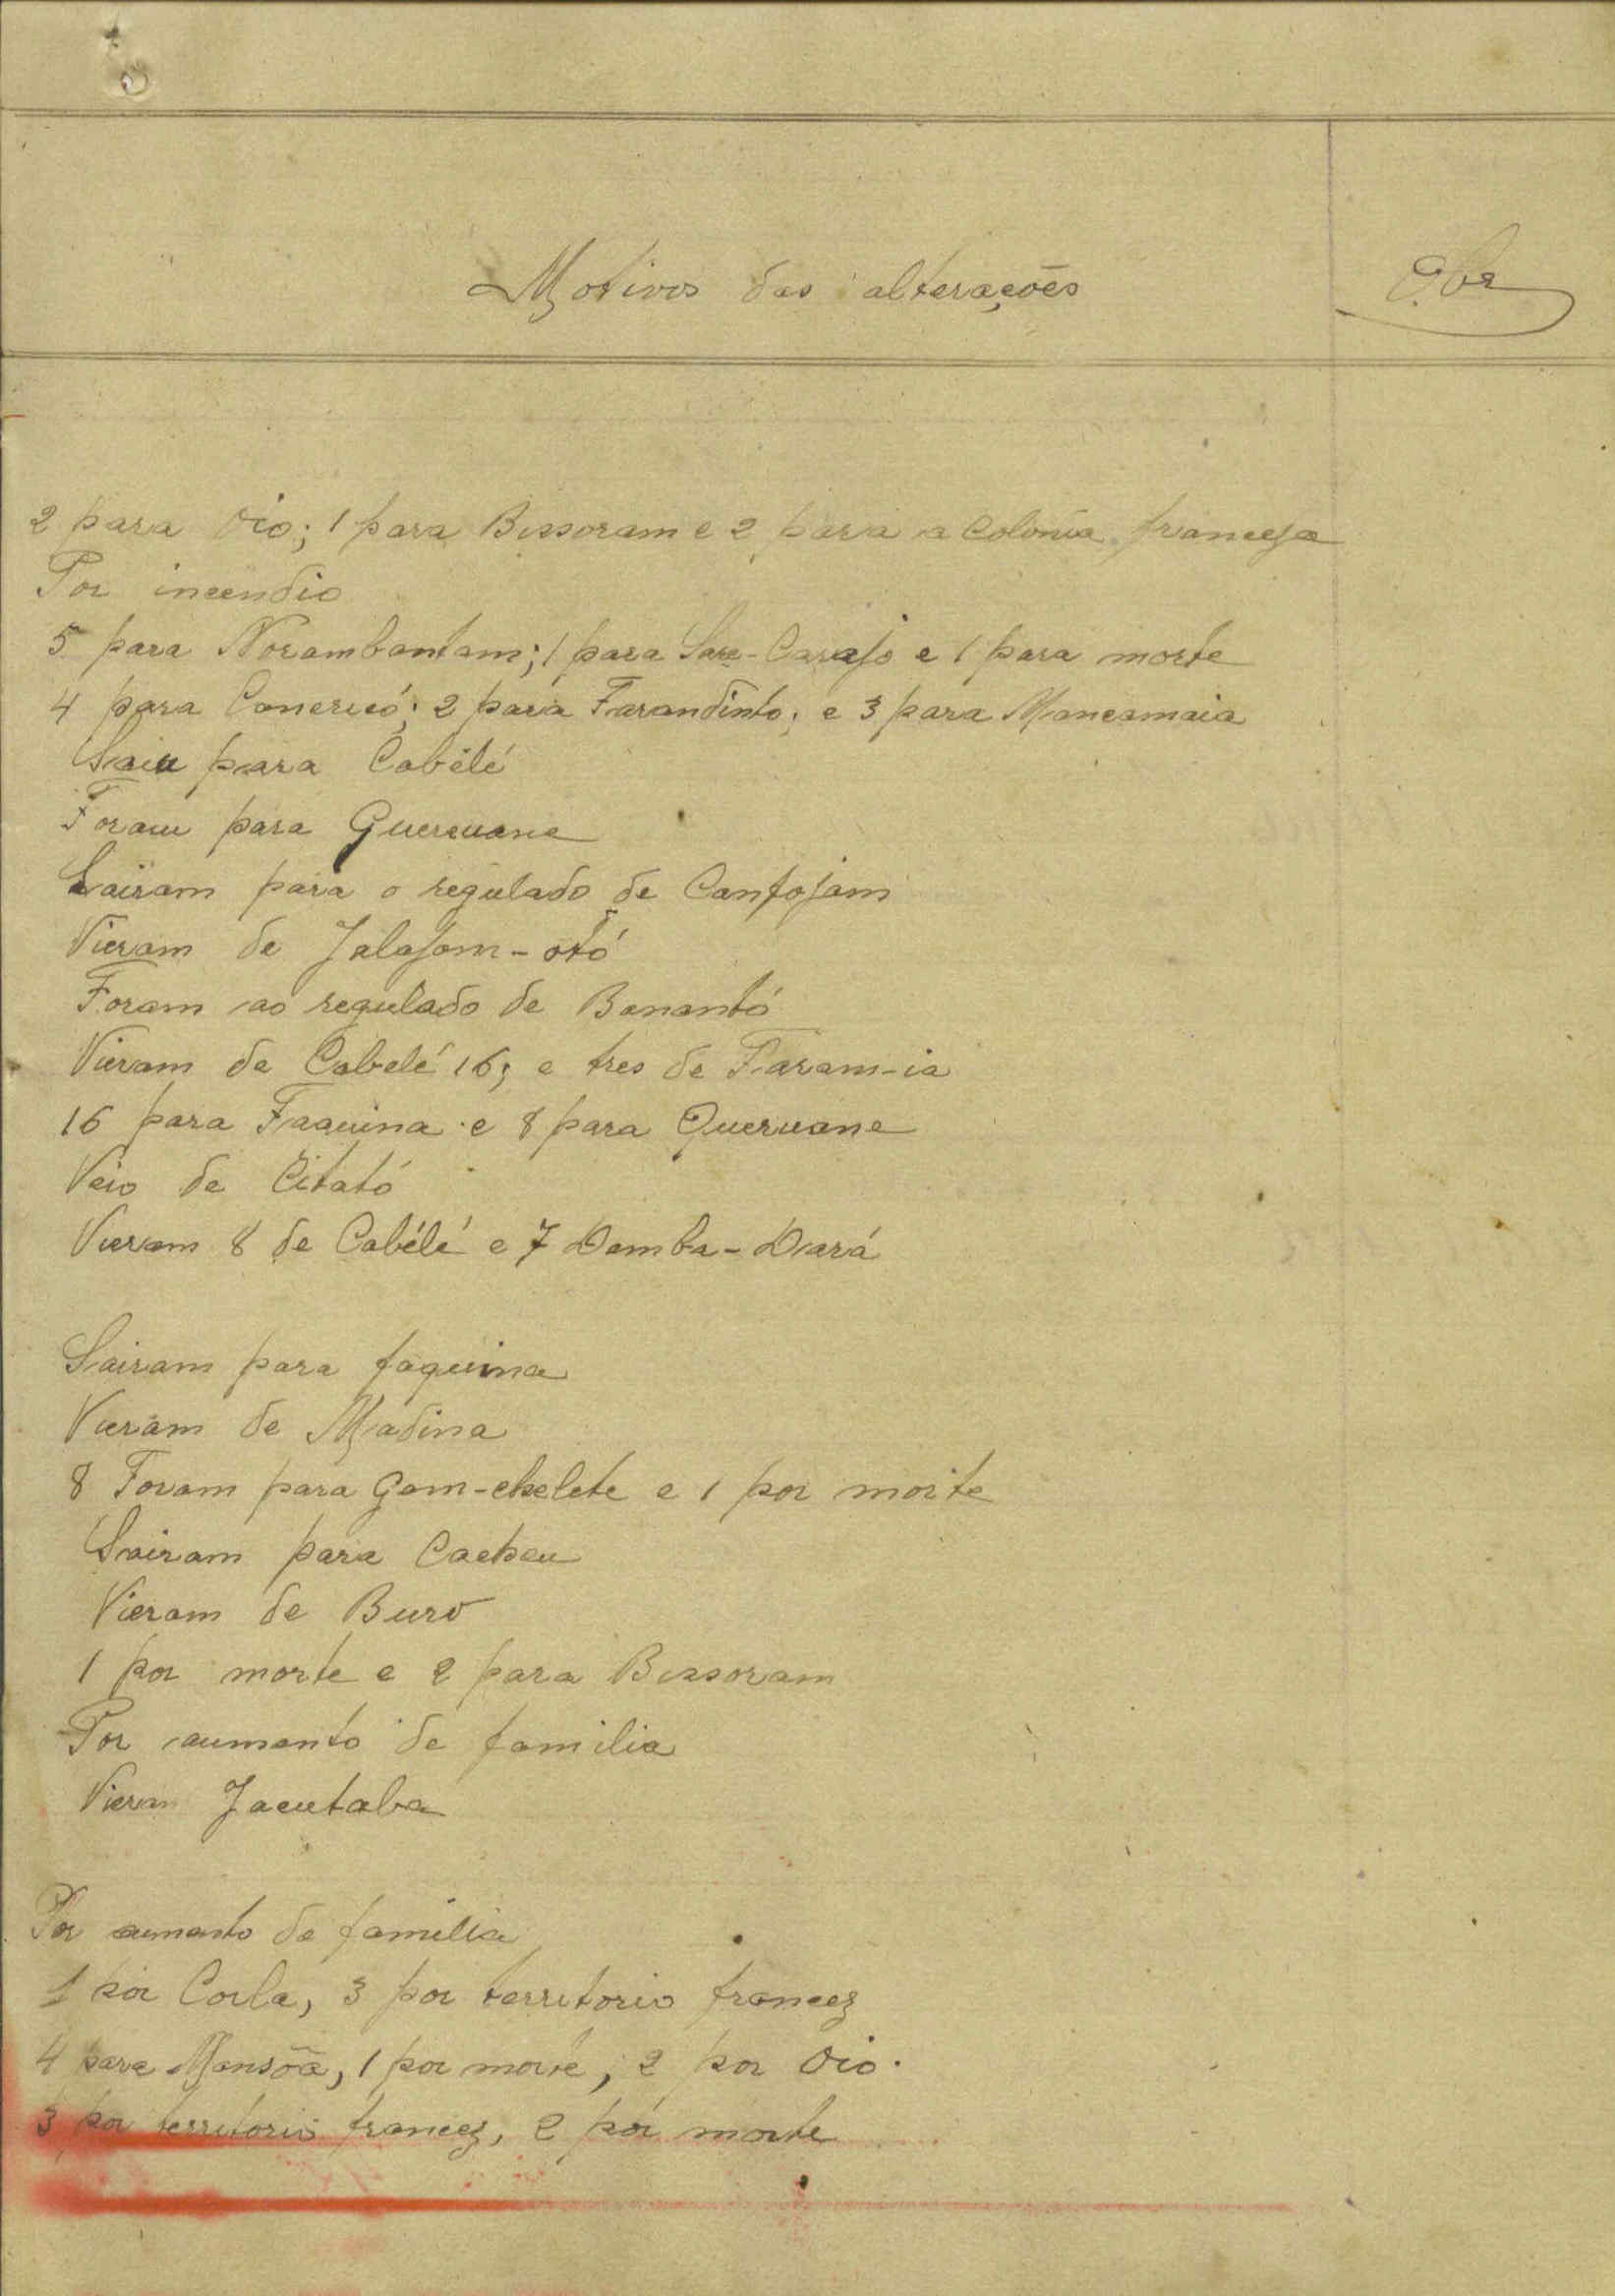 Motivos das alterações
Obs
2 para Oio; 1 para Bissoram e 2 para a Colonia franceza
Por incendio
5 para Norambantam; 1 para Sare-Carajo e 1 para morte
4 para Canericó; 2 para Farandinto; e 3 para Manesmaia
Saiu para Cabélé
Foram para Queruane
Sairam para o regulado de Canfojam
Vieram de Jalajom-otó
Foram ao regulado de Banantó
Vieram de Cabelé 16; e tres de Faram-ia
16 para Faquina e 8 para Queruane
Veio de Citató
Vieram 8 de Cabélé e 7 Demba-Diará
Sairam para faquina
Vieram de Madina
8 Foram para Gam-chelete e 1 por morte
Sairam para Cacheu
Vieram de Buro
1 por morte e 2 para Bissoram
Por aumento de familia
Vieram Jacutaba
Por aumento de familia
1 por Corla, 3 por territorio francez
4 para Mansôa, 1 por morte, 2 por Oio.
3 por territorio francez, 2 por morte